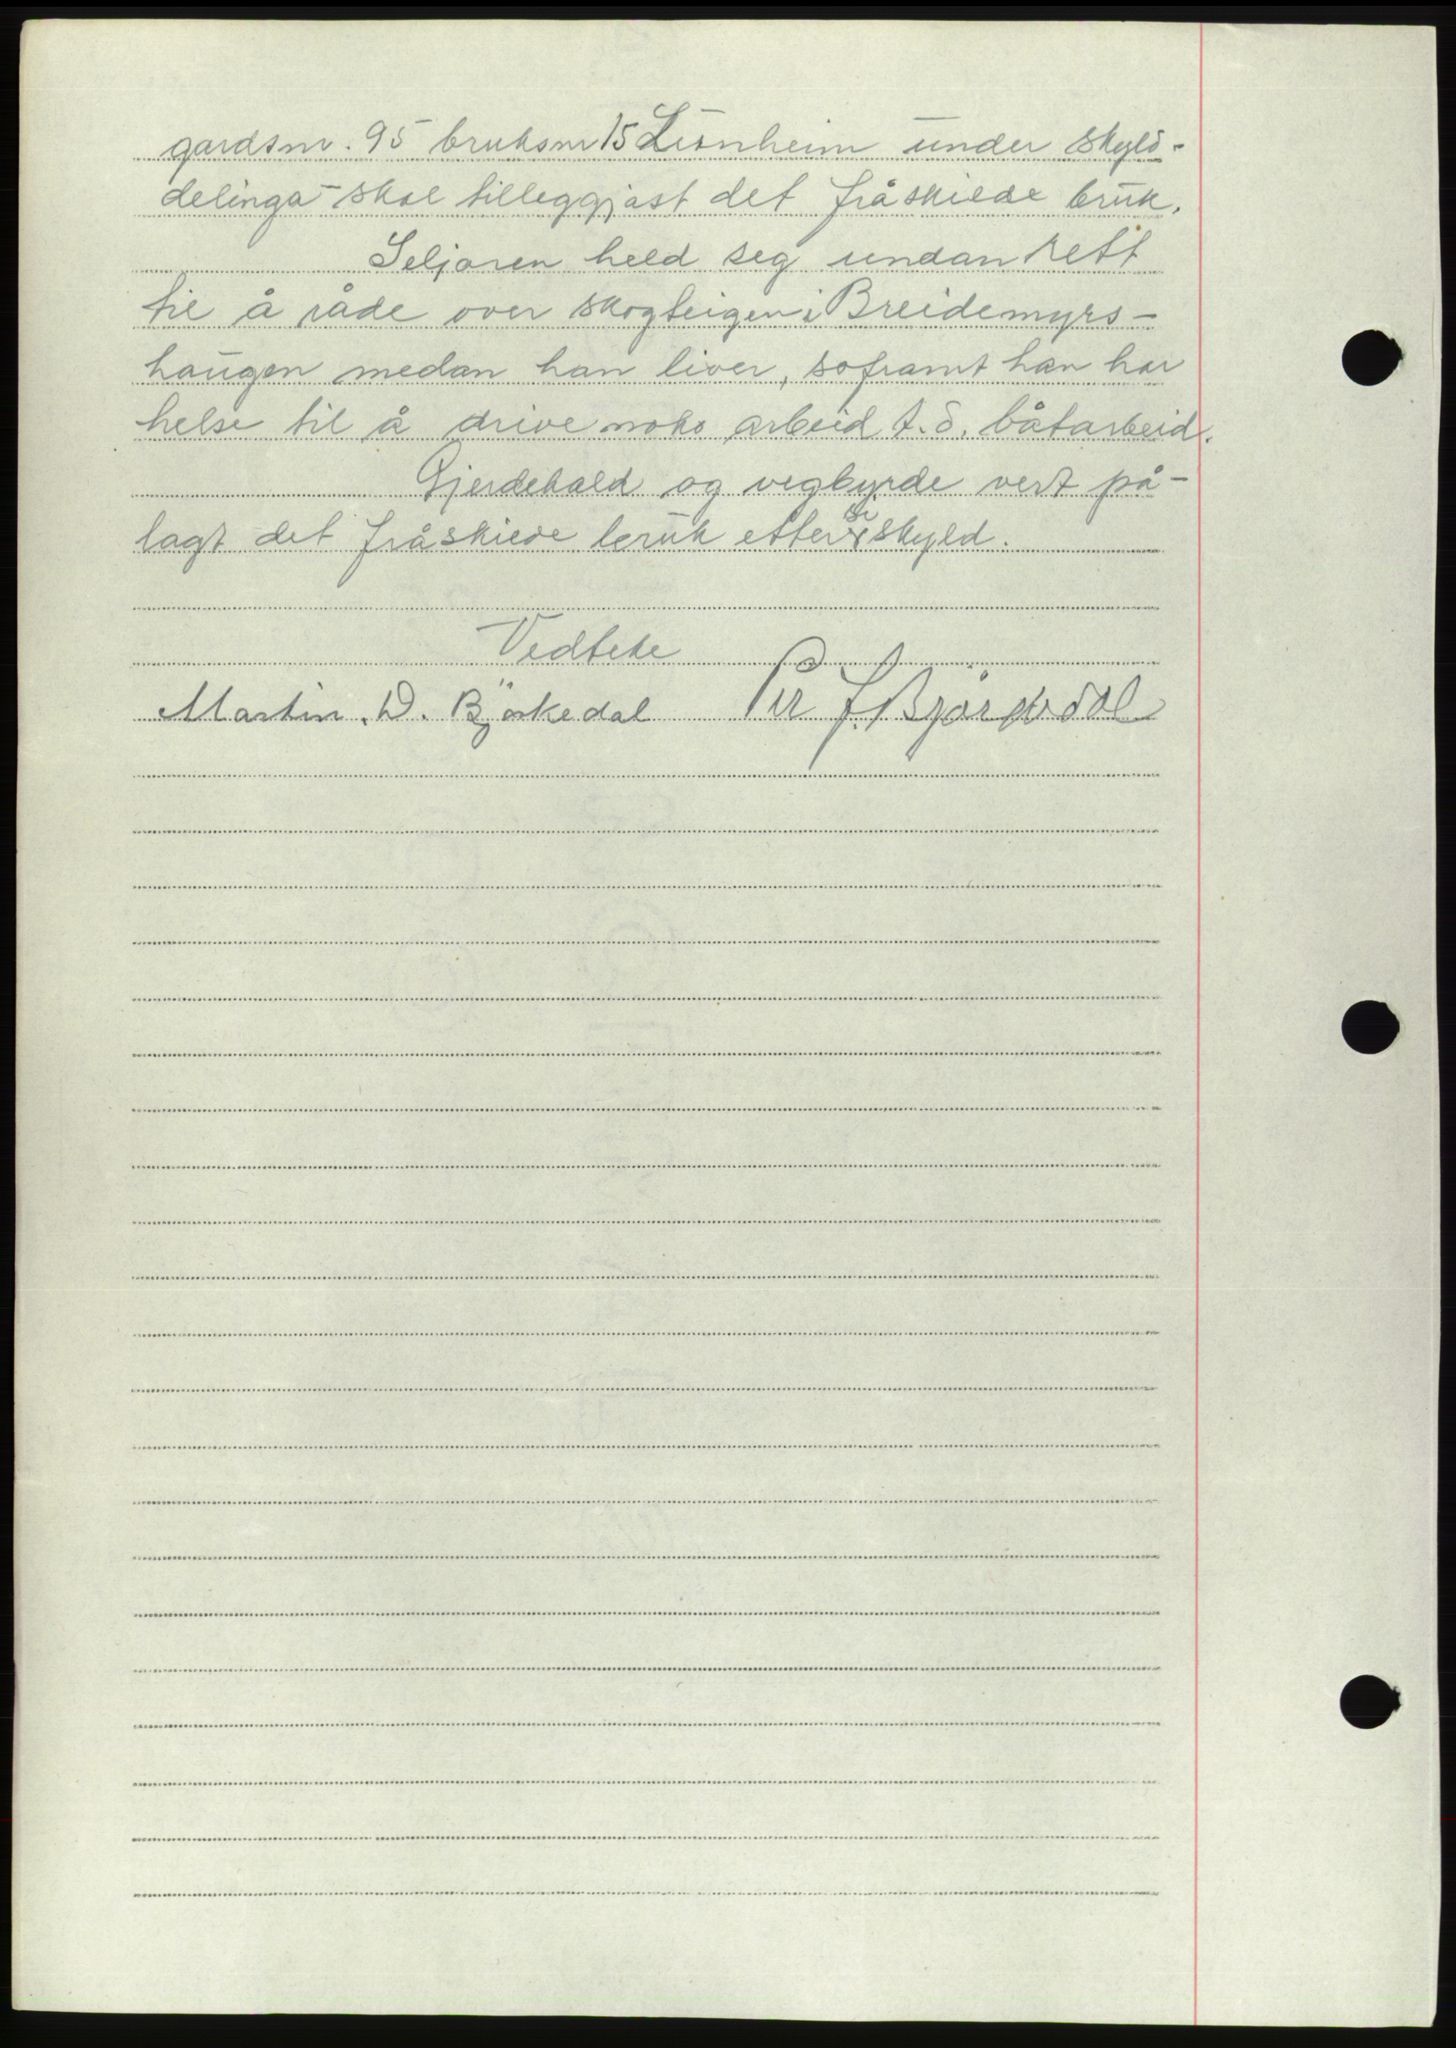 gardsnr. 95 bruksnr 15 Lionheim under skyld-
delinga - skal tilleggjast det fråskilde bruk.
Seljaren held seg undan rett
til å råde over skogteigen i Breidemyrs-
haugen medan han liver, soframt han har
helse til å drive noko arbeid t.d. båtarbeid.
Gjerdehald og vegbyrde vert på-
lagt det fråskilde bruk etter si skyld.
Vedteke
Martin. D. Bjørkedal Per J. Bjørkedal